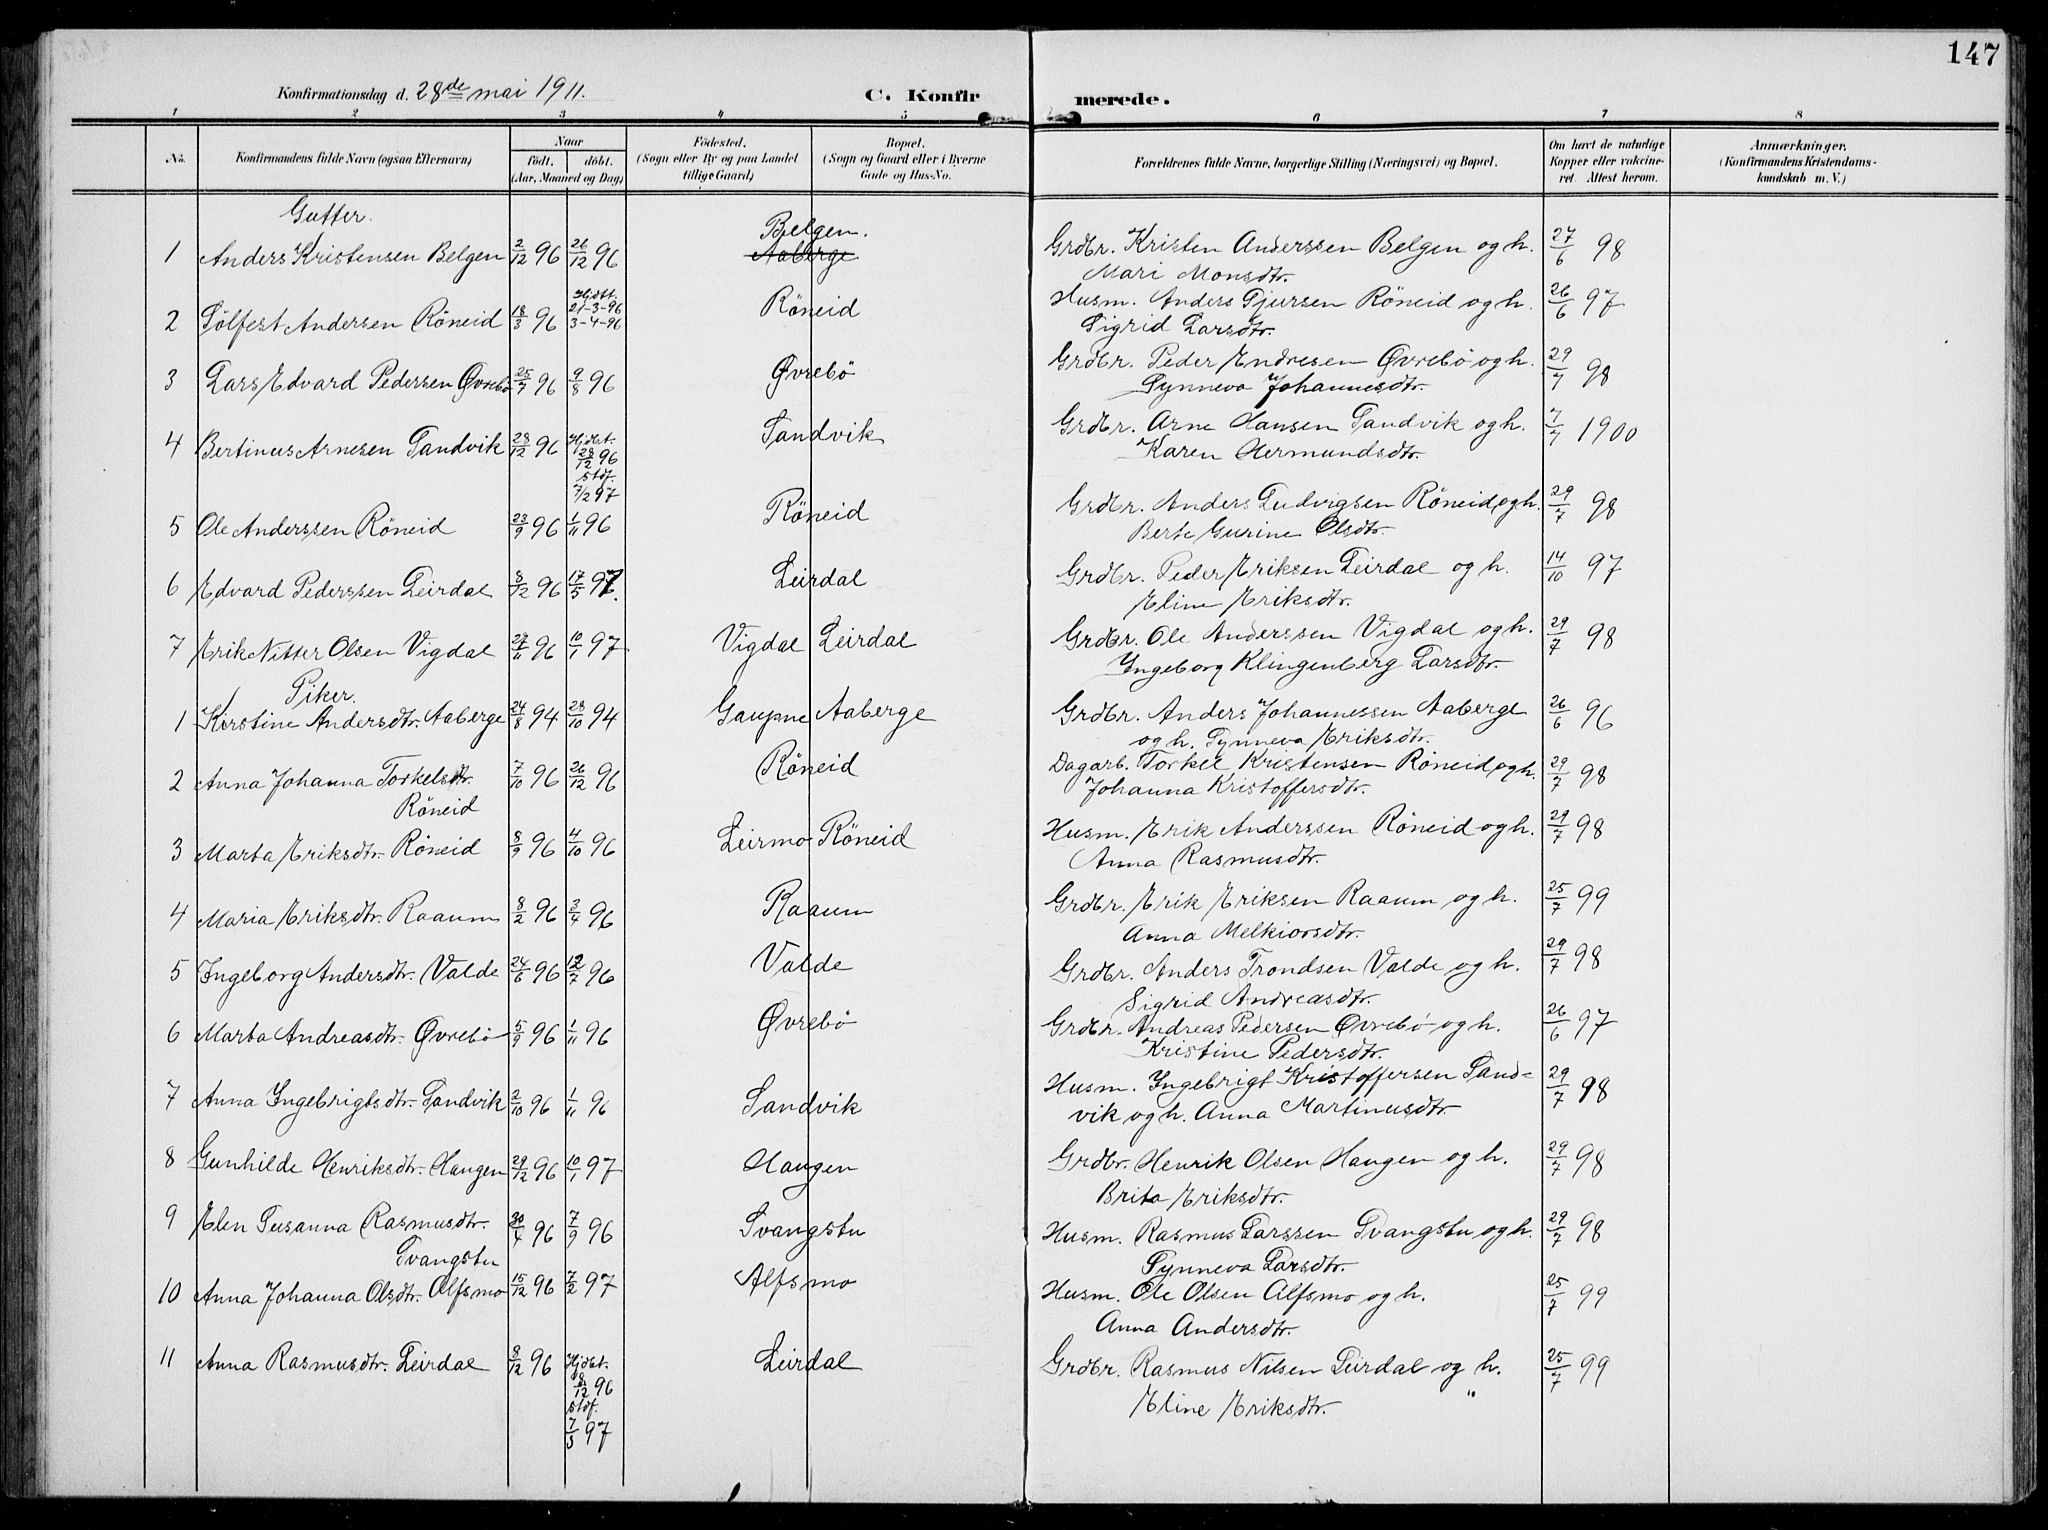 147
Konfirmationsdag d. 28de mai 1911.
C. Konfirmerede.
1 2 3 4 5 6 7 8
No. Konfirmandens fulde Navn (ogsaa Efternavn) Naar født, døbt. (Aar, Maaned og Dag) Födested. (Sogn eller By og paa Landet tillige Gaard) Bopæl. (Sogn og Gaard eller i Byerne Gade og Hus-No. Forældrenes fulde Navne, borgerlige Stilling (Næringsvei) og Bopæl. Om havt de naturlige Kopper eller vakcineret. Attest herom. Anmærkninger, (Konfirmandens Kristendomskundskab m. V.)
Gutter.
1 Anders Kristensen Belgen 2/12 96 26/12 96 Belgen. Aaberge Grdbr. Kristen Anderssen Belgen og h. 27/6 98
Mari Monsdtr.
2 Sölfest Andersen Röneid 18/3 96 Hjdtt. 21-3-96 3-4-96 Röneid Husm. Anders Gjursen Röneid og h. 26/6 97
Sigrid Larsdtr.
3 Lars Edvard Pedersen Øvrebö 25/7 96 9/8 96 Øvrebö Grdbr. Peder Endresen Øvrebö og h. 29/7 98
Synneva Johannesdtr.
4 Bertinus Arnesen Sandvik 28/12 96 Hjdbt. 28/12 96 stdf. 7/2 97 Sandvik Grdbr. Arne Hansen Sandvik og h. 7/7 1900
Karen Hermundsdtr.
5 Ole Anderssen Röneid 23/9 96 1/11 96 Röneid Grdbr. Anders Ludvigsen Röneid og h. 29/7 98
Berte Gurine Olsdtr.
6 Edvard Pederssen Leirdal 8/12 96 17/5 97. Leirdal Grdbr. Peder Eriksen Leirdal og h. 14/10 97
Eline Eriksdtr.
7 Erik Nitter Olsen Vigdal 27/11 96 10/1 97 Vigdal Leirdal Grdbr. Ole Anderssen Vigdal og h. 29/7 98
Ingeborg Klingenberg Larsdtr.
Piker.
1 Kirstine Andersdtr. Aaberge 24/8 94 28/10 94 Gaupne Aaberge Grdbr. Anders Johannessen Aaberge 26/6 96
og h. Synneva Eriksdtr.
2 Anna Johanna Torkelsdtr. 7/10 96 26/12 96 Röneid Dagarb. Torkel Kristensen Röneid og h. 29/7 98
Röneid Johanna Kristoffersdtr.
3 Marta Eriksdtr. Röneid 8/9 96 4/10 96 Leirmo Röneid Husm. Erik Anderssen Röneid og h. 29/7 98
Anna Rasmusdtr.
4 Maria Eriksdtr. Raaum 8/2 96 3/4 96 Raaum Grdbr. Erik Eriksen Raaum og h. 25/7 99
Anna Melkiorsdtr.
5 Ingeborg Andersdtr. Valde 24/6 96 12/7 96 Valde Grdbr. Anders Trondsen Valde og h. 29/7 98
Sigrid Andreasdtr.
6 Marta Andreasdtr. Øvrebö 5/9 96 1/11 96 Øvrebö Grdbr. Andreas Pedersen Øvrebö og h. 26/6 97
Kristine Pedersdtr.
7 Anna Ingebrigtsdtr. Sandvik 2/10 96 1/11 96 Sandvik Husm. Ingebrigt Kristoffersen Sand- 29/7 98
vik og h. Anna Martinusdtr.
8 Gunhilde Henriksdtr. Haugen 29/12 96 10/1 97 Haugen Grdbr. Henrik Olsen Haugen og h. 29/7 98
Brita Eriksdtr.
9 Elen Susanna Rasmusdtr. 30/4 96 7/9 96 Svangstu Husm. Rasmus Larssen Svangstu og h. 29/7 98
Svangstu Synneva Larsdtr.
10 Anna Johanna Olsdtr. Alfsmo 15/12 96 7/2 97 Alfsmo Husm. Ole Olsen Alfsmo og h. 25/7 99
Anna Andersdtr.
11 Anna Rasmusdtr. Leirdal 8/12 96 Hjdbt. 8/12 96 stdf. 7/3 97 Leirdal Grdbr. Rasmus Nilsen Leirdal og h. 25/7 99
Eline Eriksdtr. "